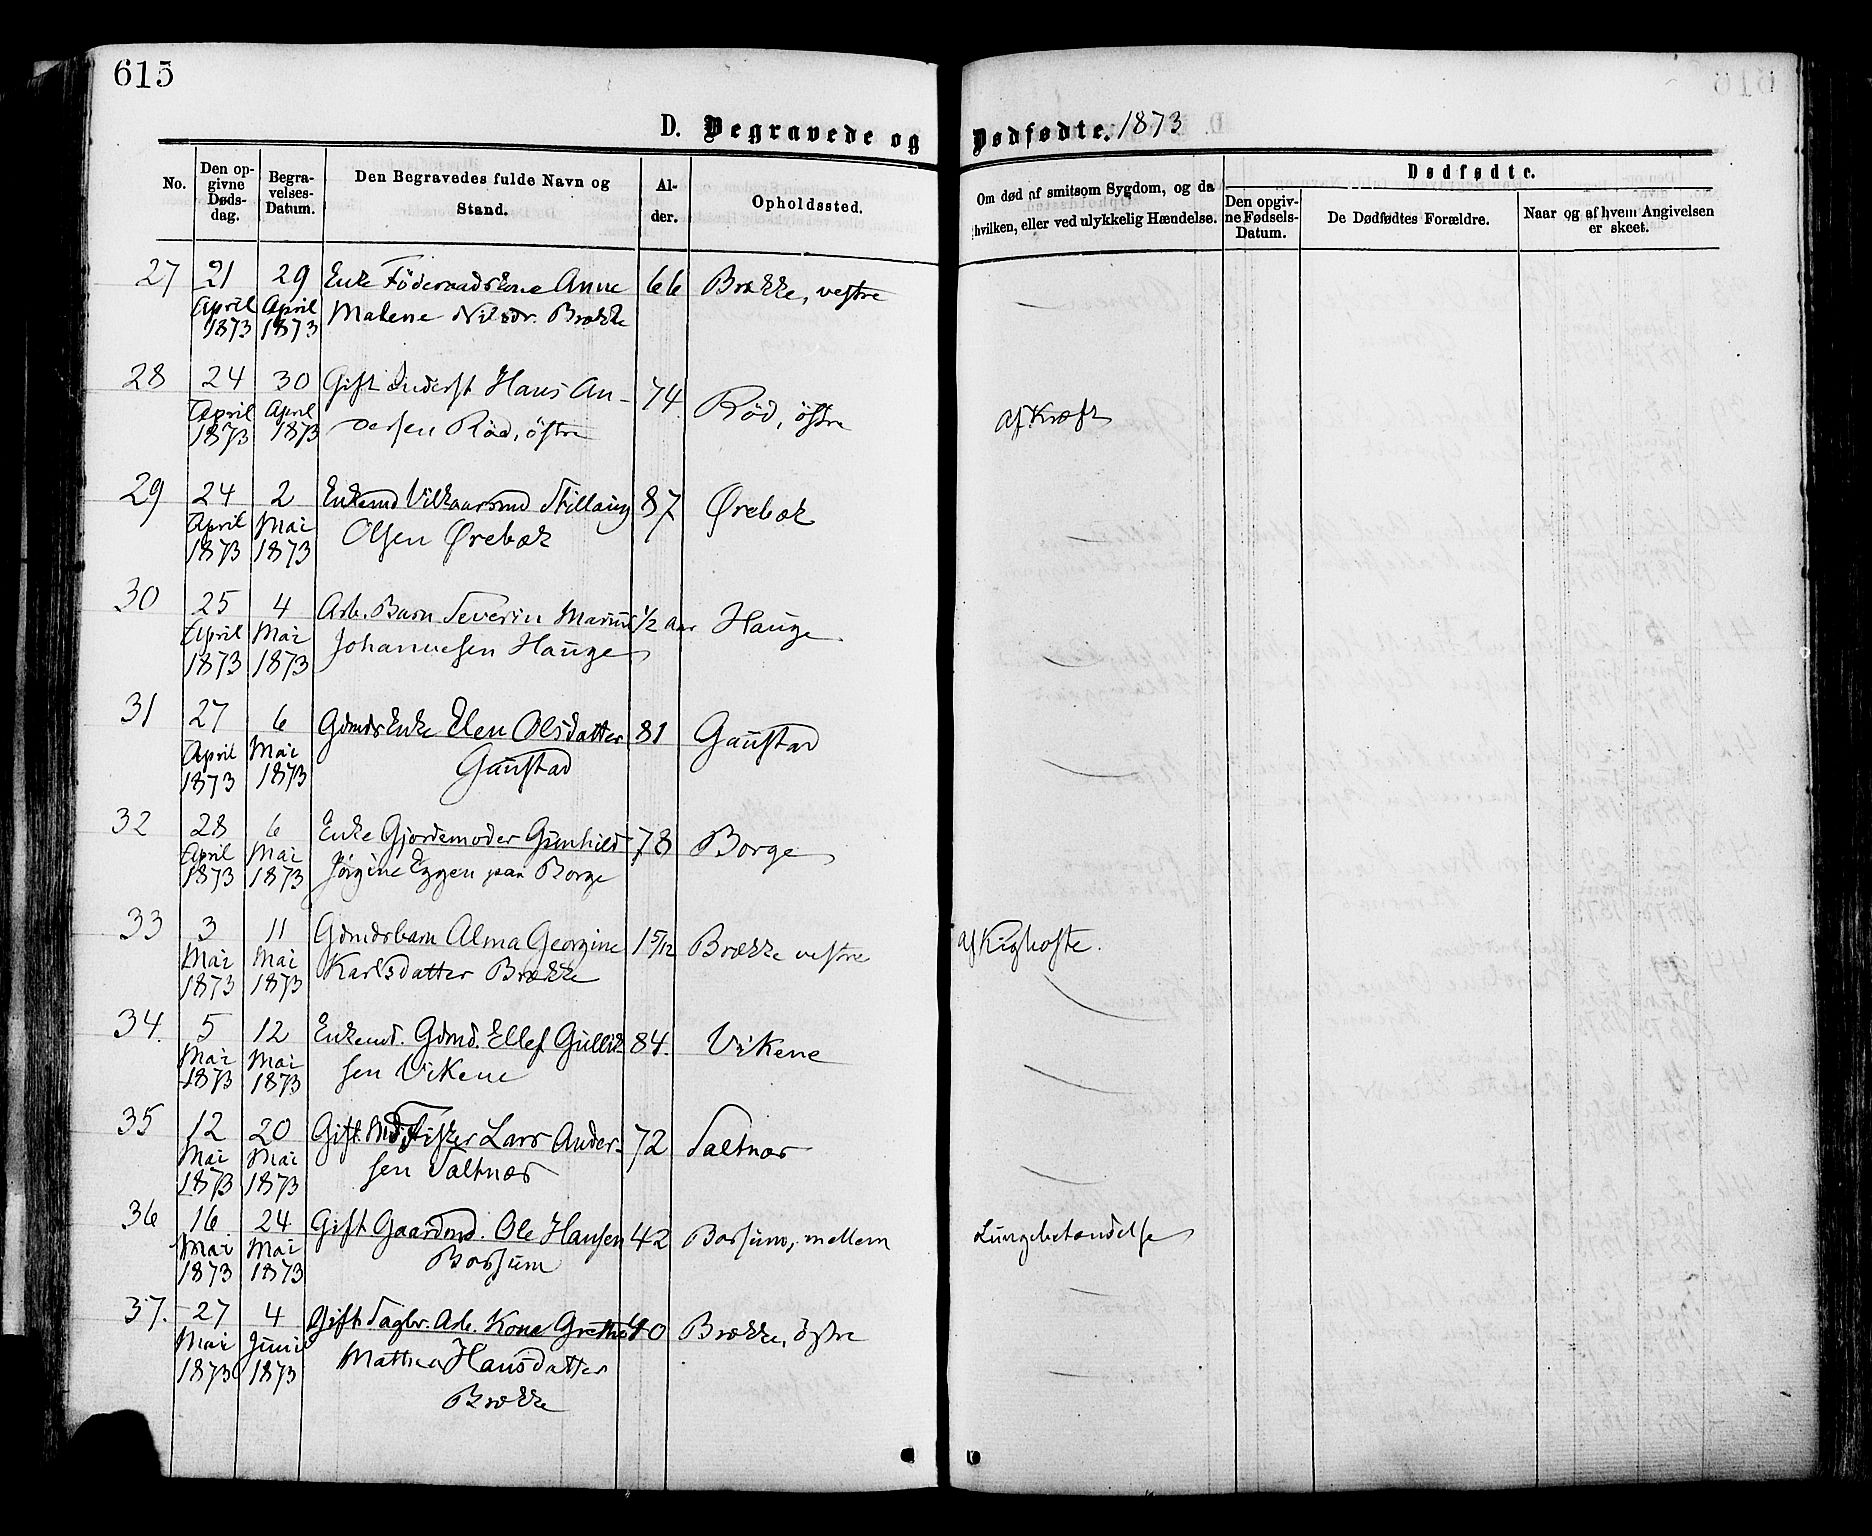 615
D. Begravede og Dødfødte. 1873
No.
Den opgivne Dødsdag.
Begravelses-Datum.
Den Begravedes fulde Navn og Stand.
Alder.
Opholdssted.
Om død af smitsom Sygdom, og da hvilken, eller ved ulykkelig Hændelse.
Dødfødte.
Den opgivne Fødsels-Datum.
De Dødfødtes Forældre.
Naar og af hvem Angivelsen er skeet.
27 21 29 Enke Föderaadskone Anne 66 Brække, vestre
April April Malene Nilsdr. Brække
1873 1873
28 24 30 Gift Inderst Hans An- 74 Röd, östre af Kræft
April April dersen Röd, östre
1873 1873
29 24 2 Enkemd Vilkaarsmd Stillaug 87 Ørebæk
April Mai Olsen Ørebæk
1873 1873
30 25 4 Arb. Barn Severin 1/2 Aar Hauge
April Mai Johannesen Hauge
1873 1873
31 27 6 Gdmds Enke Elen Olsdatter 81 Gaustad
April Mai Gaustad
1873 1873
32 28 6 Enke Gjordemoder Gunhild 78 Borge
April Mai Jörgine Eggen paa Borge
1873 1873
33 3 11 Gdmdsbarn Alma Georgine 1 5/12 Brække vestre af Kighoste.
Mai Mai Karlsdatter Brække
1873 1873
34. 5 12 Enkemd. Gdmd. Ellef Gullik- 84. Vikene
Mai Mai sen Vikene
1873 1873
35 12 20 Gift Fisker Lars Ander- 72 Saltnæs
Mai Mai sen Saltnæs
1873 1873
36 16 24 Gift Gaardmd. Ole Hansen 42 Borsum, mellem Lungebetændelse
Mai Mai Borsum
1873 1873
37. 27 4 Gift Dagl. Arb. Kone Grethe 40 Brække, östre
Mai Juni Mathea Hansdatter
1873 1873 Brække